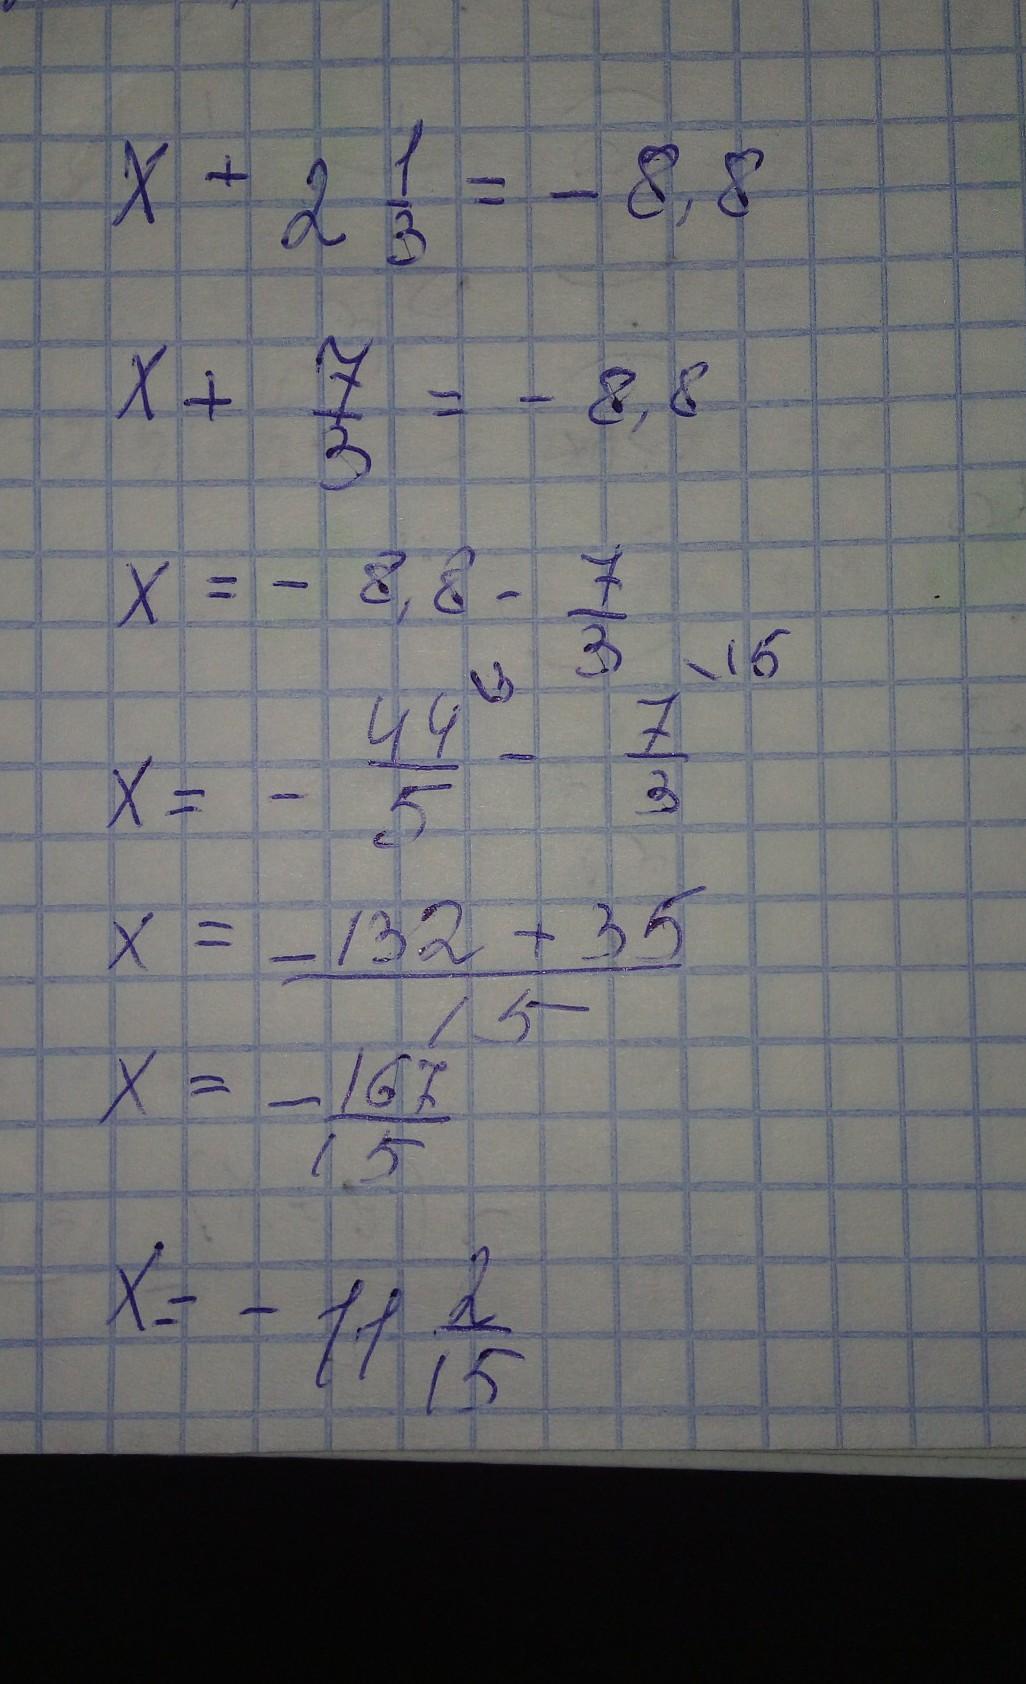 x + 2 1/3 = - 8,8
x + 7/3 = - 8,8
x = - 8,8 - 7/3
x = - 44/5 \3 - 7/3 \15
x = -132 + 35/15
x = - 167/15
x = - 11 2/15